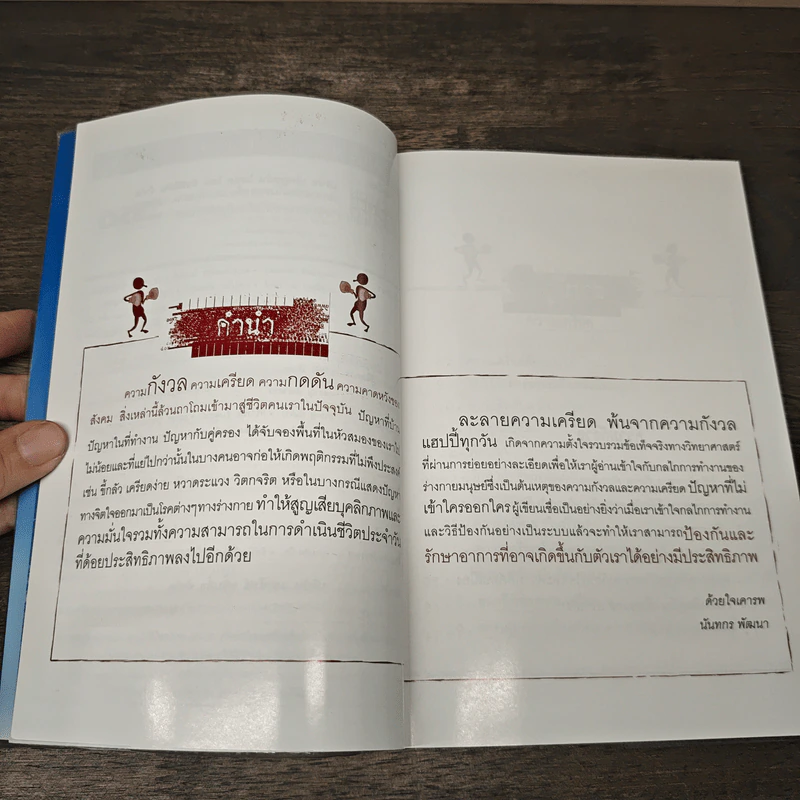 คำนำ
ความกังวล ความเครียด ความกดดัน ความคาดหวังของ
สังคม สิ่งเหล่านี้ล้วนถาโถมเข้ามาสู่ชีวิตคนเราในปัจจุบัน ปัญหาที่บ้าน
ปัญหาในที่ทำงาน ปัญหากับคู่ครอง ได้จับจองพื้นที่ในหัวสมองของเราไป
ไม่น้อยและที่แย่ไปกว่านั้นในบางคนอาจก่อให้เกิดพฤติกรรมที่ไม่พึงประสงค์
เช่น ขี้กลัว เครียดง่าย หวาดระแวง วิตกจริต หรือในบางกรณีแสดงปัญหา
ทางจิตใจออกมาเป็นโรคต่างๆทางร่างกาย ทำให้สูญเสียบุคลิกภาพและ
ความมั่นใจรวมทั้งความสามารถในการดำเนินชีวิตประจำวัน
ที่ด้อยประสิทธิภาพลงไปอีกด้วย
ละลายความเครียด พ้นจากความกังวล
แฮปปี้ทุกวัน เกิดจากความตั้งใจรวบรวมข้อเท็จจริงทางวิทยาศาสตร์
ที่ผ่านการย่อยอย่างละเอียดเพื่อให้เราผู้อ่านเข้าใจกับกลไกการทำงานของ
ร่างกายมนุษย์ซึ่งเป็นต้นเหตุของความกังวลและความเครียด ปัญหาที่ไม่
เข้าใครออกใคร ผู้เขียนเชื่อเป็นอย่างยิ่งว่าเมื่อเราเข้าใจกลไกการทำงาน
และวิธีป้องกันอย่างเป็นระบบแล้วจะทำให้เราสามารถป้องกันและ
รักษาอาการที่อาจเกิดขึ้นกับตัวเราได้อย่างมีประสิทธิภาพ
ด้วยใจเคารพ
นันทกร พัฒนา